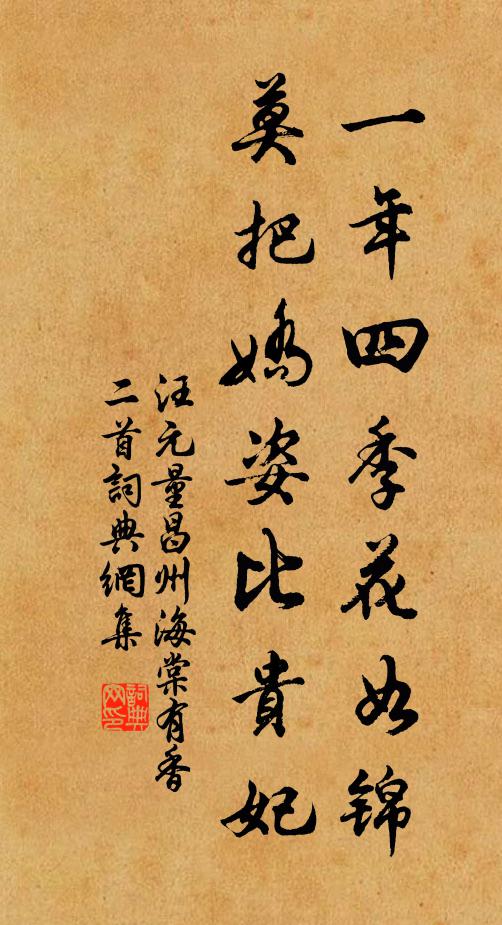 一年四季花如锦
莫把嬌姿比貴妃
汪元量昌州海棠有香
二首詞典網集
詞典
网印